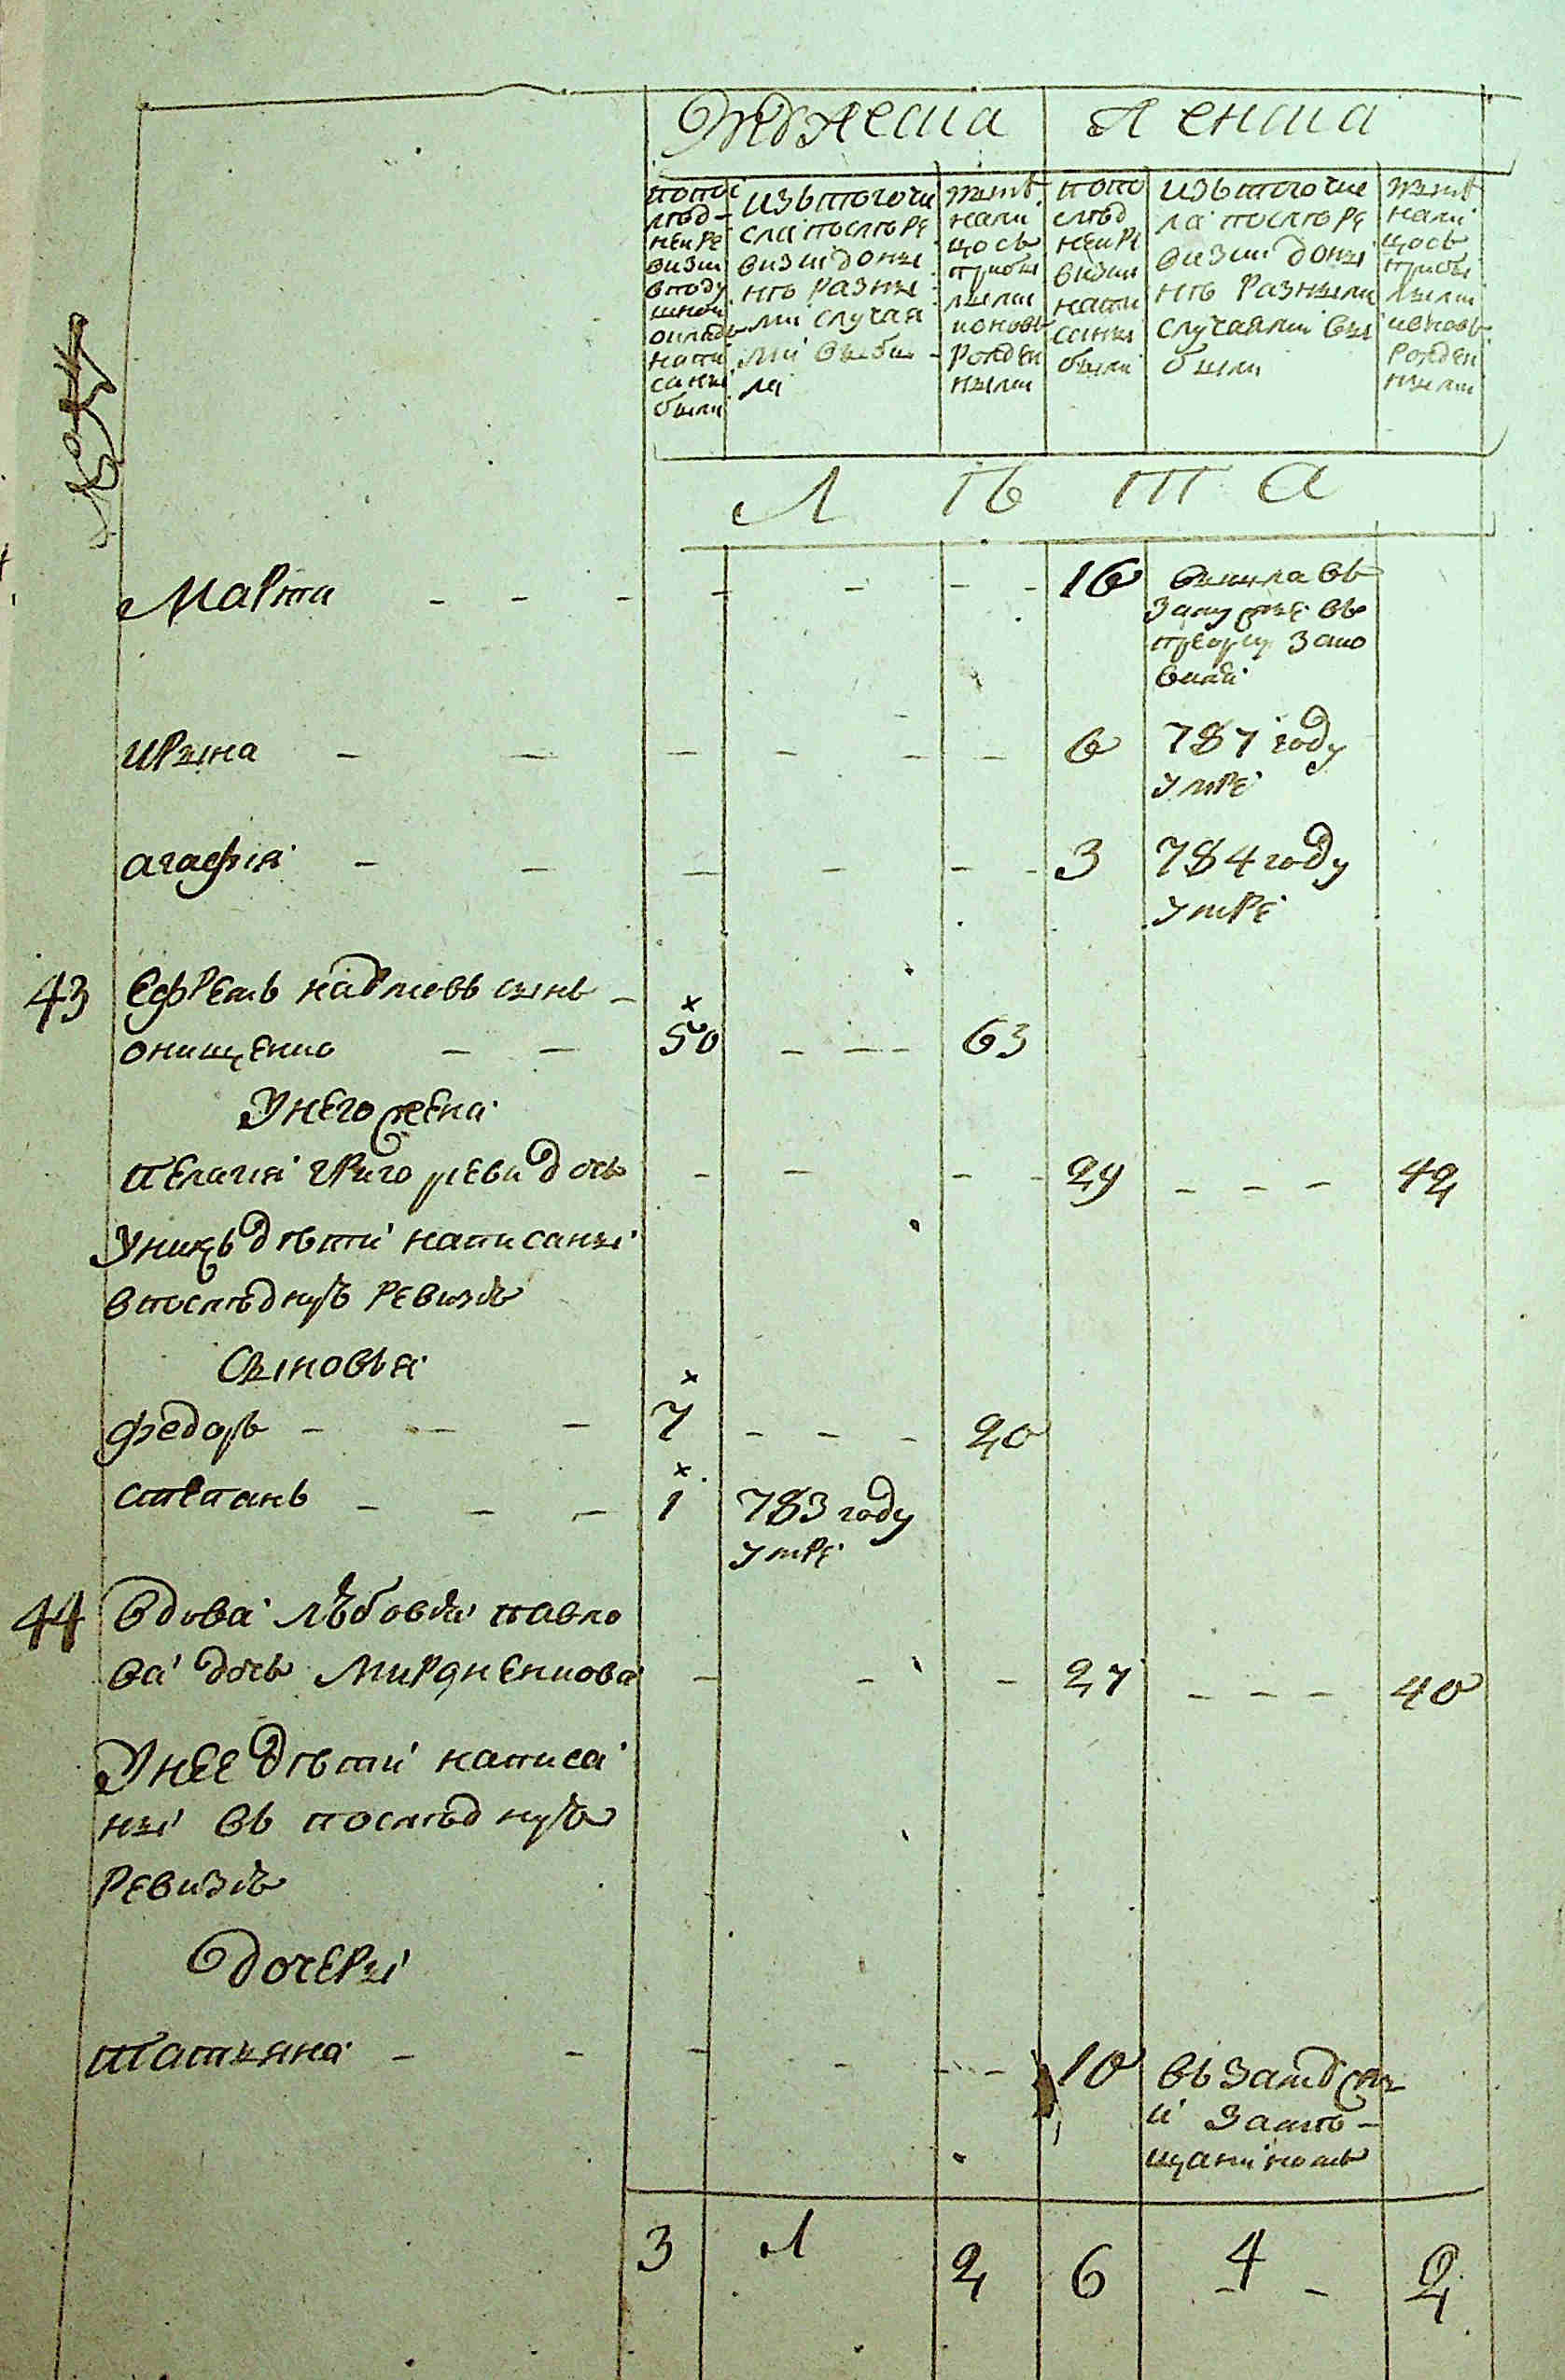 Мужеска
Женска
по пос
лѣд-
ней ре
визiи
в поду
шной
окладъ
напи
саны
были
изъ того чи
сла после ре
визiи до ны
нѣ разны
ми случая
ми выбы-
ла
нынѣ
на ли
цось
прибы
лыми
и новь
рожден
ными
по по
слѣд
ней ре
визiи
напи
саны
были
изъ того чис
ла после ре
визiи до ны
нѣ разными
случаями вы
были
нынѣ
на ли
цось
прибы
лыми
и новь
рожден
ными
Л Ѣ Т А
Марта - - - 16 вышла въ
замужже въ
Ирына - - 6 787 году
умре
агафiя - - 3 784 году
умре
43 Ефремъ сынъ -
онищенко - - 50 - - - 63
У него жена
пелагiя григориева дочь - - - 29 - - - 42
У нихъ дѣти написаны
в последную ревизiю
Сыновья
федоръ - - - 7 - - - 20
степанъ - - - 1 783 году
умре
44 Вдова любовъ павло
ва дочь - - - 27 - - - 40
У нее дѣти написа
ны въ последную
ревизiю
Дочеры
татыяна - - 10 въ замуж
и за мѣ-
щаниномъ
3 1 2 6 4 2